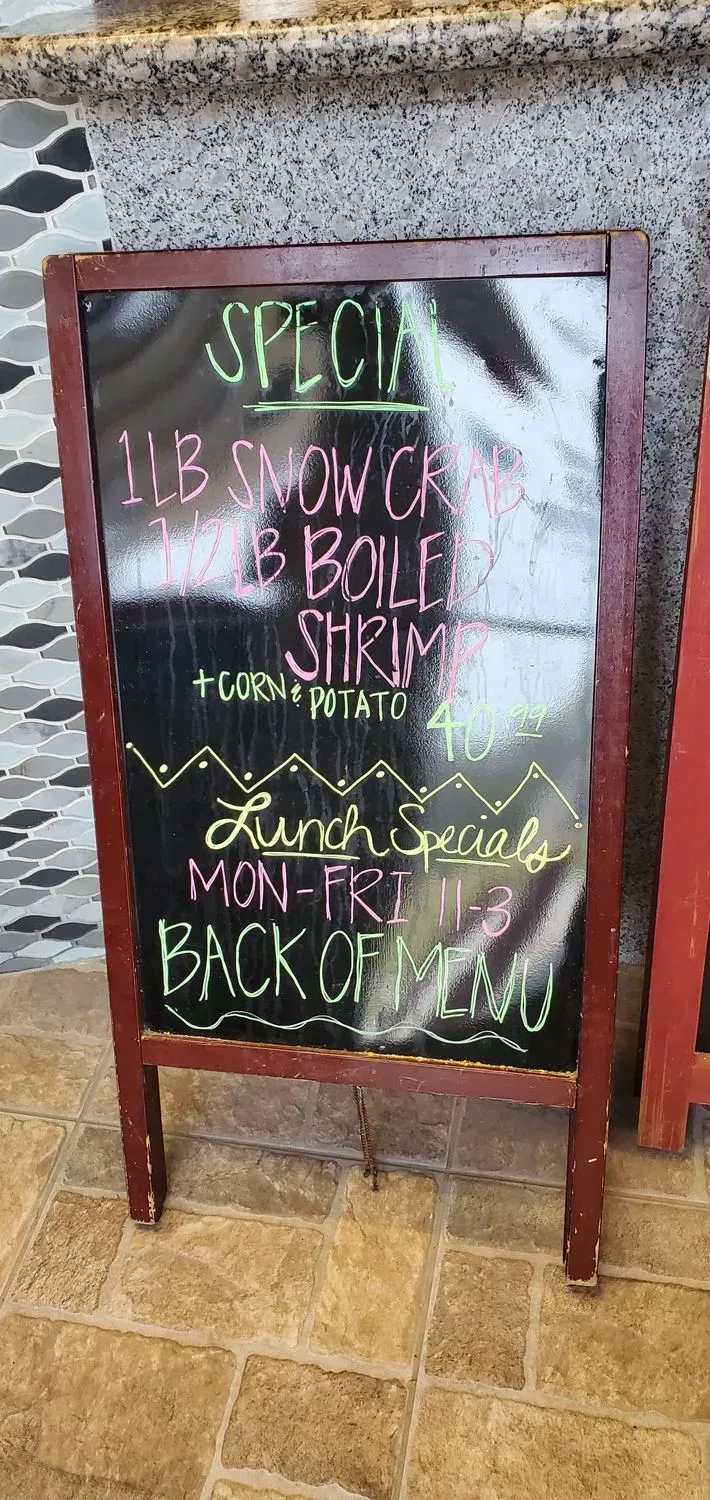 SPECIAL
1LB SNOW CRAB
1/2LB BOILED
SHRIMP
+CORN & POTATO 40 99
Lunch Specials
MON-FRI 11-3
BACK OF MENU